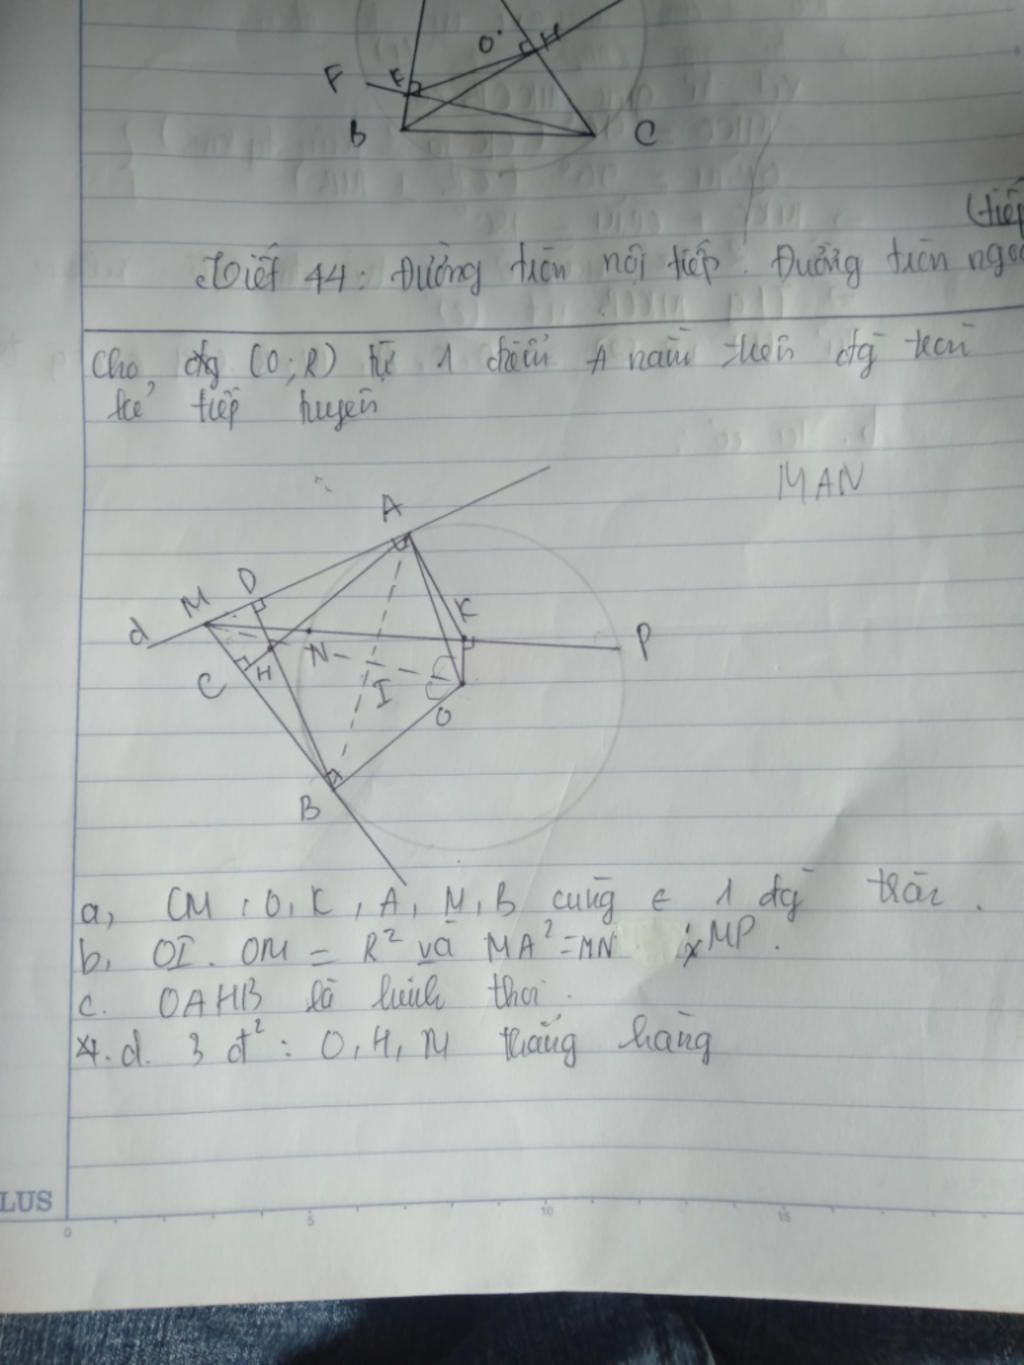 O
H
F
E
B
C
(tiếp
Tiết 44: Đường tròn nội tiếp. Đường tròn ngoạ
Cho đtg (O;R) từ 1 điểm A nằm trên đtg tròn
kẻ tiếp tuyến
MAN
A
D
M
K
d
P
N
C
H
I
O
B
a, CM: O, K, A, M, B cùng ∈ 1 đtg tròn.
b, OI. OM = R² và MA² = MN × MP.
c. OAHB là hình thoi.
*. d. 3 đ²: O, H, M thẳng hàng
LUS
0 5 10 15